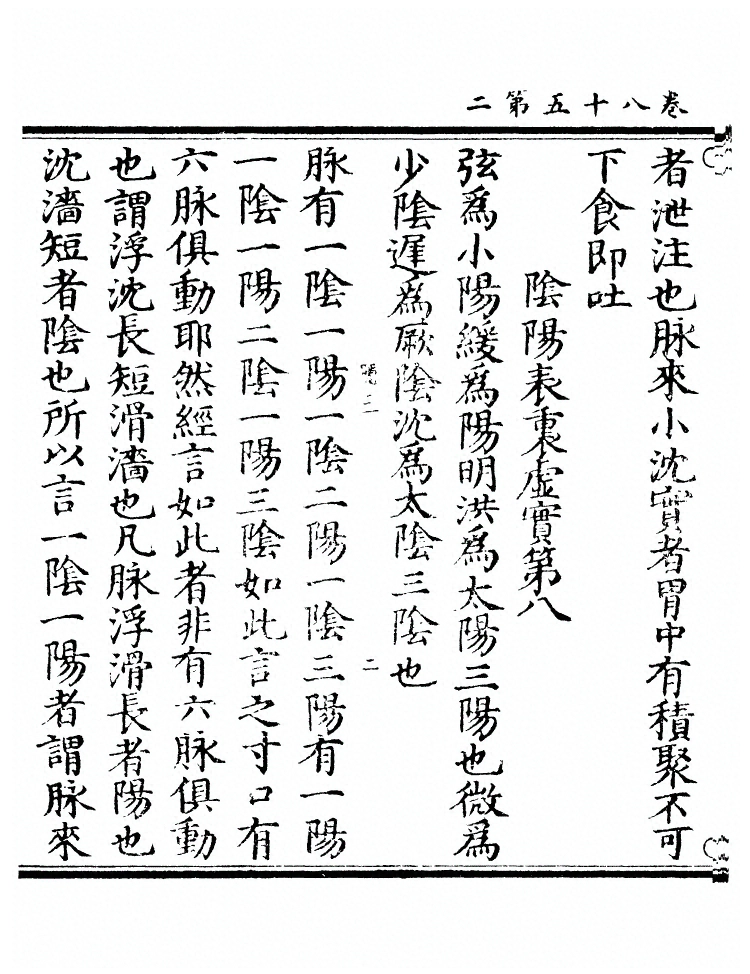 卷八十五第二
者泄注也脉來小沈實者胃中有積聚不可
下食即吐
陰陽表裏虛實第八
弦爲小陽緩爲陽明洪爲太陽三陽也微爲
少陰遲爲厥陰沈爲太陰三陰也
陽三
二
脉有一陰一陽一陰二陽一陰三陽有一陽
一陰一陽二陰一陽三陰如此言之寸口有
六脉俱動耶然經言如此者非有六脉俱動
也謂浮沈長短滑濇也凡脉浮滑長者陽也
沈濇短者陰也所以言一陰一陽者謂脉來